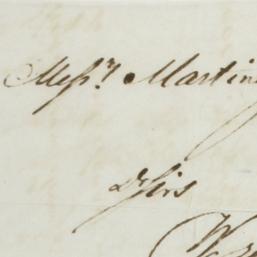 Messrs. Martin
Drsirs
W